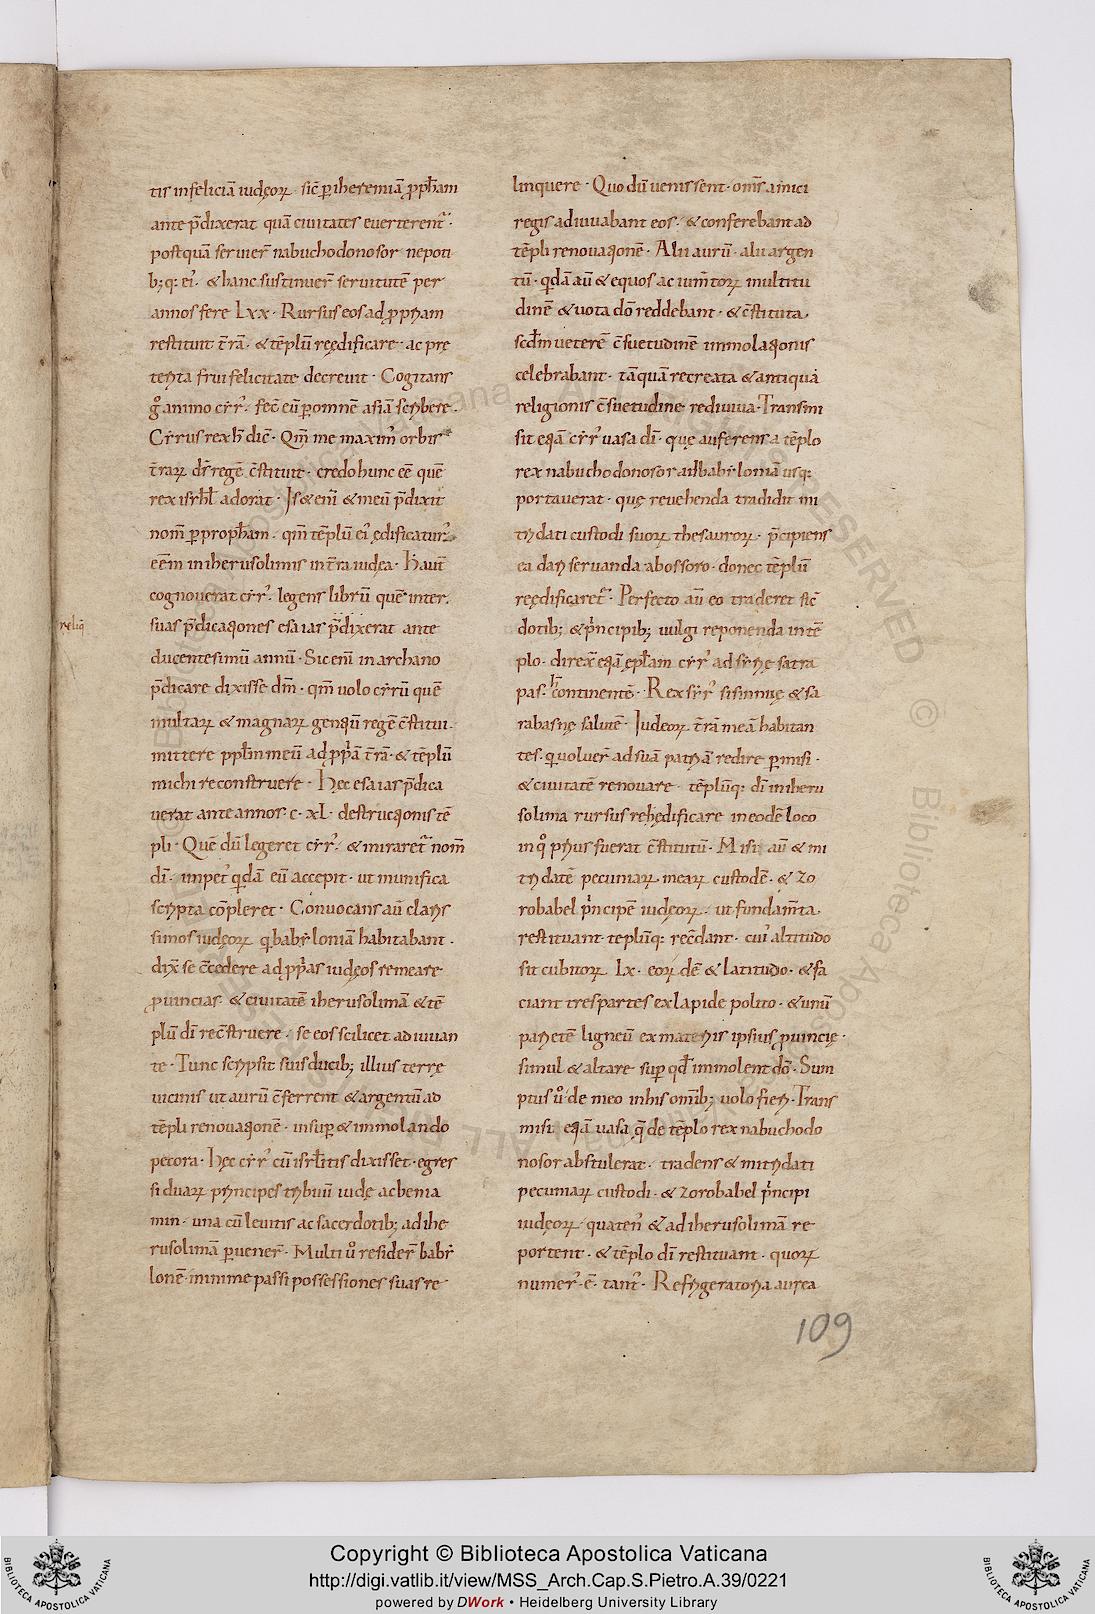 tis infeliciā iudęoꝝ · sic̄ ꝑ iheremiā ꝓph̄am
ante p̄dixerat quā ciuitates euerterent᷑ ·
postquā seruier̄ nabuchodonosor nepoti
b; q: ei᷒ · & hanc sustinuer̄ seruitutē per
annos fere Lxx · Rursus eos ad ꝓpriam
restituit t̄rā · & tēplū reędificare · ac prę
terita frui felicitate decreuit · Cogitans
gͦ animo cẏr᷒ · fec̄ eū ꝑ omnē asiā scribere ·
Cẏrus rex h̄ dic̄ · Qm̄ me maxim᷒ orbis
t̄raꝝ ds̄ regē c̄stituit · credo hunc eē quē
rex isrh̄l adorat · Is & eni᷒ & meū p̄dixit
nom̄ ꝑ proph̄am · qm̄ tēplū ei᷒ ędificatur᷒
eēm in iherusolimis in t̄ra iudęa · Haut̄
cognouerat cẏr᷒ · legens librū quē inter
reliq̄
suas p̄dicationes esaias p̄dixerat ante
ducentesimū annū · Sic eni᷒ in archano
p̄dicare dixisse dm̄ · qm̄ uolo cẏrū quē
multaꝝ & magnaꝝ gentiū regē c̄stitui ·
mittere pplm̄ meū ad ꝓp̄ā t̄rā · & tēplū
michi reconstruere · Hęc esaias p̄dica
uerat ante annos · c · xL · destructionis tē
pli · Quē dū legeret cẏr᷒ · & miraret᷑ nom̄
dī · impet᷒ quidā eū accepit · ut munifica
scripta cōpleret · Conuocans aū claris
simos iudęoꝝ q̇ babẏloniā habitabant ·
dix̄ se c̄cedere ad ꝓp̄as iudęos remeare
ꝓuincias · & ciuitatē iherusolimā & tē
plū dī rec̄struere · se eos scilicet adiuuan
te · Tunc scripsit suis ducib; illius terrę
uicinis ut aurū c̄ferrent & argentū ad
tēpli renouationē · insuꝑ & immolando
pecora · Hęc cẏr᷒ cū isrh̄litis dixisset · egres
si duaꝝ principes tribuū iudę ac benia
min · una cū leuitis ac sacerdotib; ad ihe
rusolimā ꝑuener̄ · Multi uͦ resider̄ babẏ
lonē minime passi possessiones suas re
linquere · Quo dū uenissent · om̄s amici
regis adiuuabant eos · & conferebant ad
tēpli renouationē · Alii aurū · alii argen
tū · q̇dā aū & equos ac ium̄toꝝ multitu
dinē & uota dō reddebant · & c̄stituta
scd̄m ueterē c̄suetudinē immolationis
celebrabant · tāquā recreata & antiqua
religionis c̄suetudine rediuiua · Transmi
sit etiā cẏr᷒ uasa dī · quę auferens a tēplo
rex nabuchodonosor ad babẏloniā usq:
portauerat · quę reuehenda tradidit mi
tridati custodi suoꝝ thesauroꝝ · p̄cipiens
ea dari seruanda abossoro · donec tēplū
reędificaret᷑ · Perfecto aū eo traderet sac̄
dotib; & p̄ncipib; uulgi reponenda in tē
plo · direx̄ etiā ep̄lam cẏr᷒ ad sẏrię satra
pas · h̄ continentē · Rex cẏr᷒ sisinnię & sa
rabasnę salutē · Iudeoꝝ t̄rā meā habitan
tes · q̇ uoluer̄ ad suā patriā redire ꝑmisi ·
& ciuitatē renouare · tēplūq: dī in iheru
solima rursus rehędificare in eodē loco
in qͦ prius fuerat c̄stitutū · Misi aū & mi
tridatē pecuniaꝝ meaꝝ custodē · & zo
robabel p̄ncipē iudęoꝝ · ut fundam̄ta
restituant teplūq: rec̄dant · cui᷒ altitudo
sit cubitoꝝ Lx · eoꝝdē & latitudo · & fa
ciant tres partes ex lapide polito · & unū
parietē ligneū ex materiis ipsius ꝓuincię ·
simul & altare suꝑ qd̄ immolent dō · Sum
ptus uͦ de meo in his om̄ib; uolo fieri · Trans
misi etiā uasa q̄ de tēplo rex nabuchodo
nosor abstulerat · tradens & mitridati
pecuniaꝝ custodi · & zorobabel p̄ncipi
iudęoꝝ · quaten᷒ & ad iherusolimā re
portent · & tēplo dī restituant · quoꝝ
numer᷒ · ē · tant᷒ · Refrigeratoria aurea
109
Copyright © Biblioteca Apostolica Vaticana
http://digi.vatlib.it/view/MSS_Arch.Cap.S.Pietro.A.39/0221
powered by DWork • Heidelberg University Library